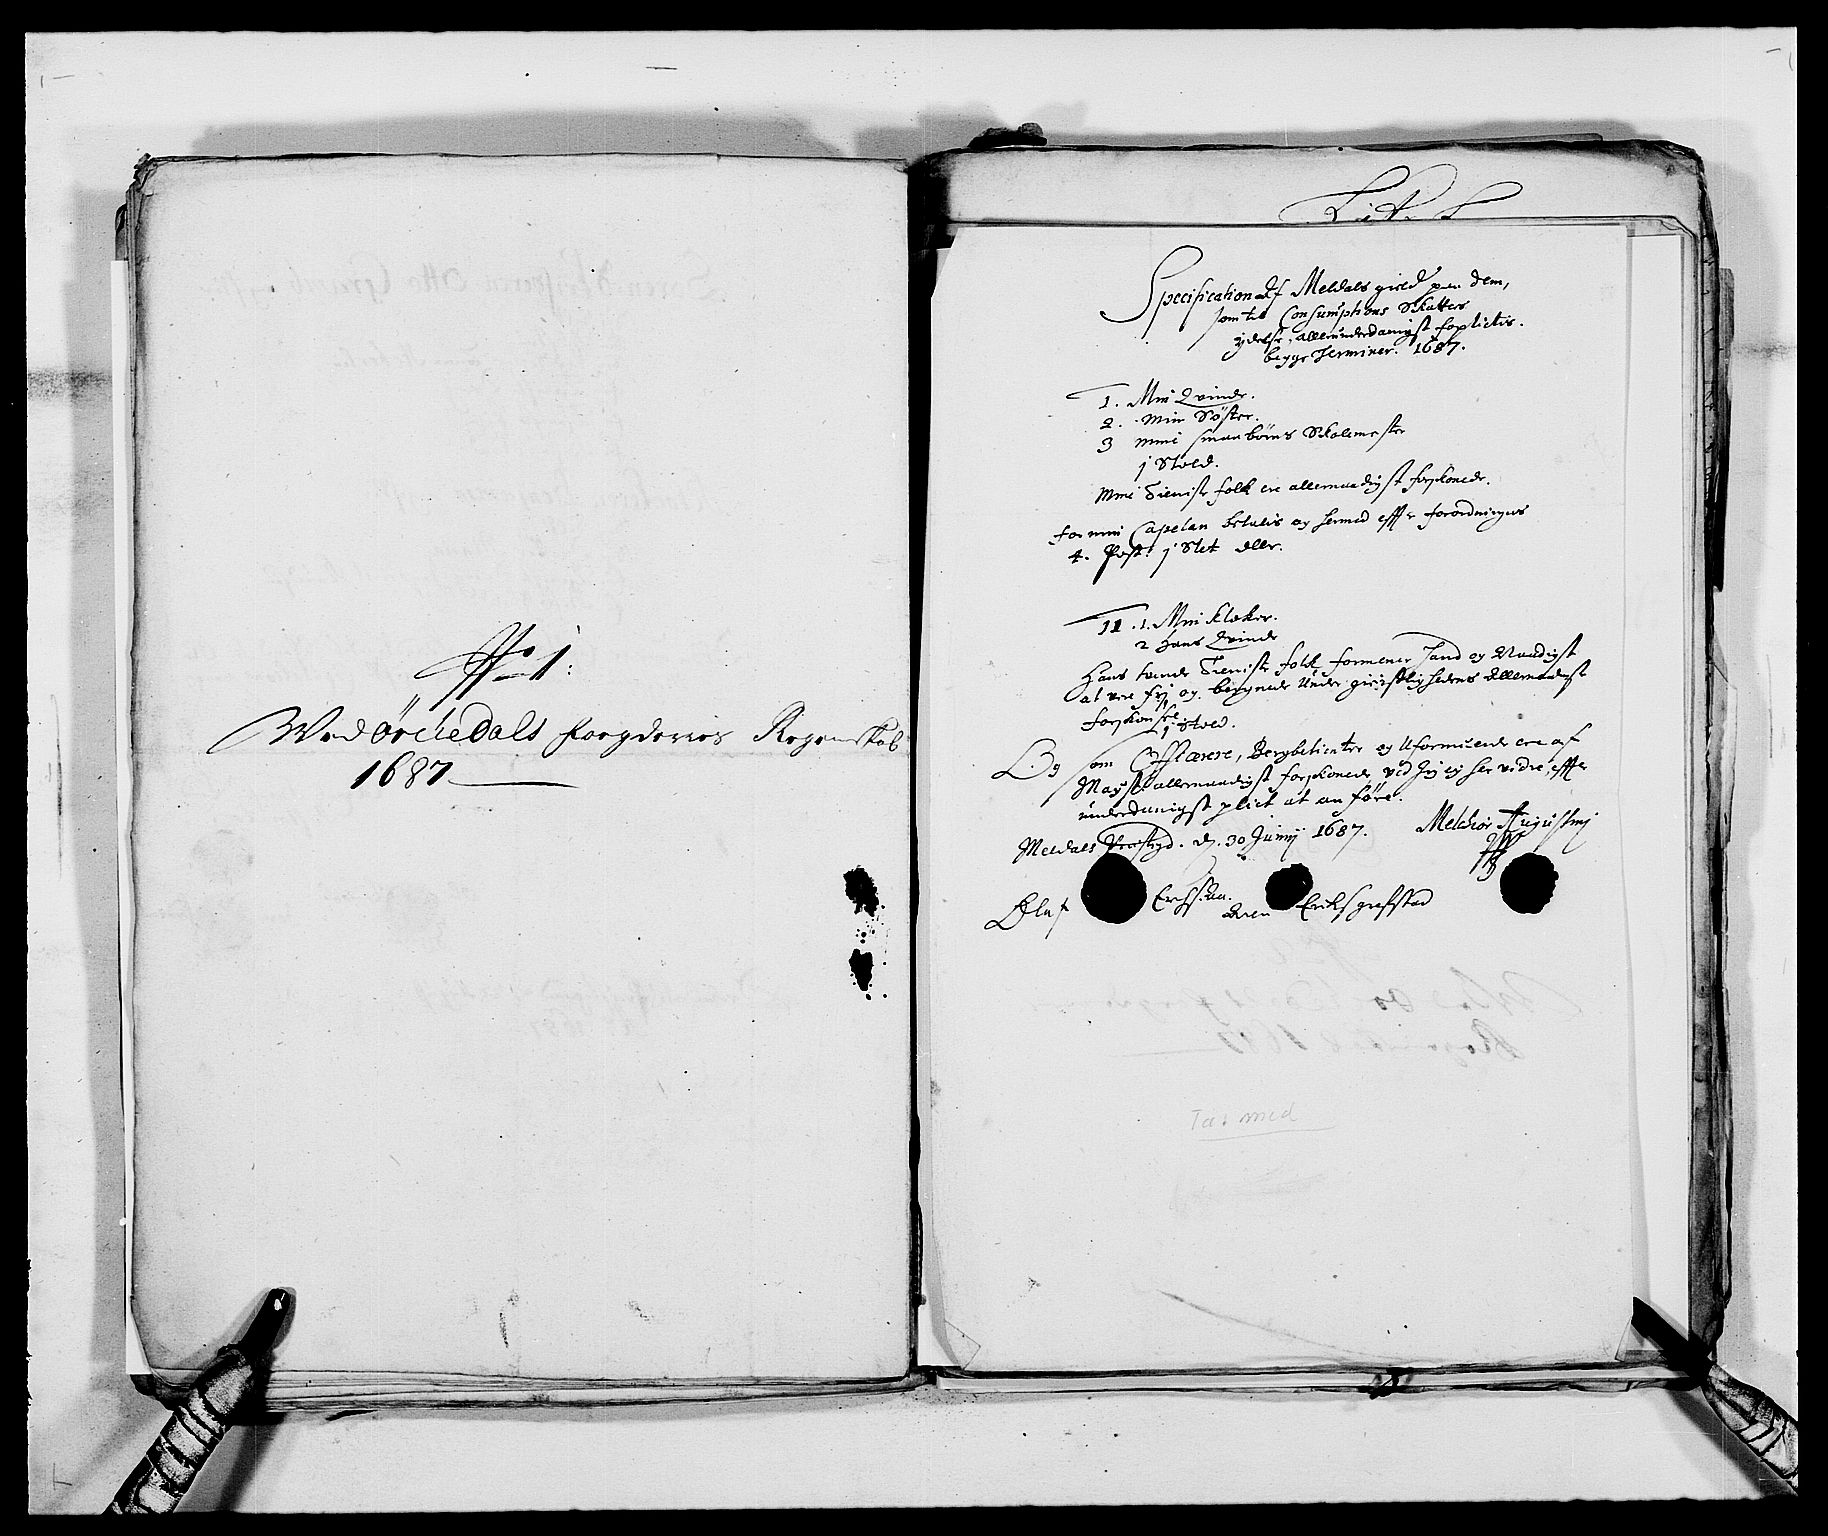 No 1:
Wed Örchedals fougderies Regenskab
1687
Lit. L
Specification Af Meldals gield paa dem,
som til Consumptions Skatters
ydelse, allerunderdanigst forplictis.
begge Terminer. 1687.
1. Min Qvinde.
2. Min Söster.
3 mine smaa börns Skolemester
j Stold.
Mine Tieniste folk ere allernaadigst forskonede.
for min Capelan betalis og hermed effter forordningens
4. Post: j Slet Daller.
11. 1. Min Klocker.
2 Hans Qvinde
Hans tvende Tieniste folk formener hand og Naadigst
at vere frj og begynade under gieistlighedens Allernaadigst
forskonsel
j Stold.
Og som Officerere, Bergbetienter og Uformuende ere af
Mayst: allernaadigst forskonede, ved Jeg ej her vidre, effter
underdanigst plict at anföre.
Meldals Prestegd. d. 30 Junij 1687. Melchior Augustinj
Oluf Erichssön. Eriksgrefstad
Tat med